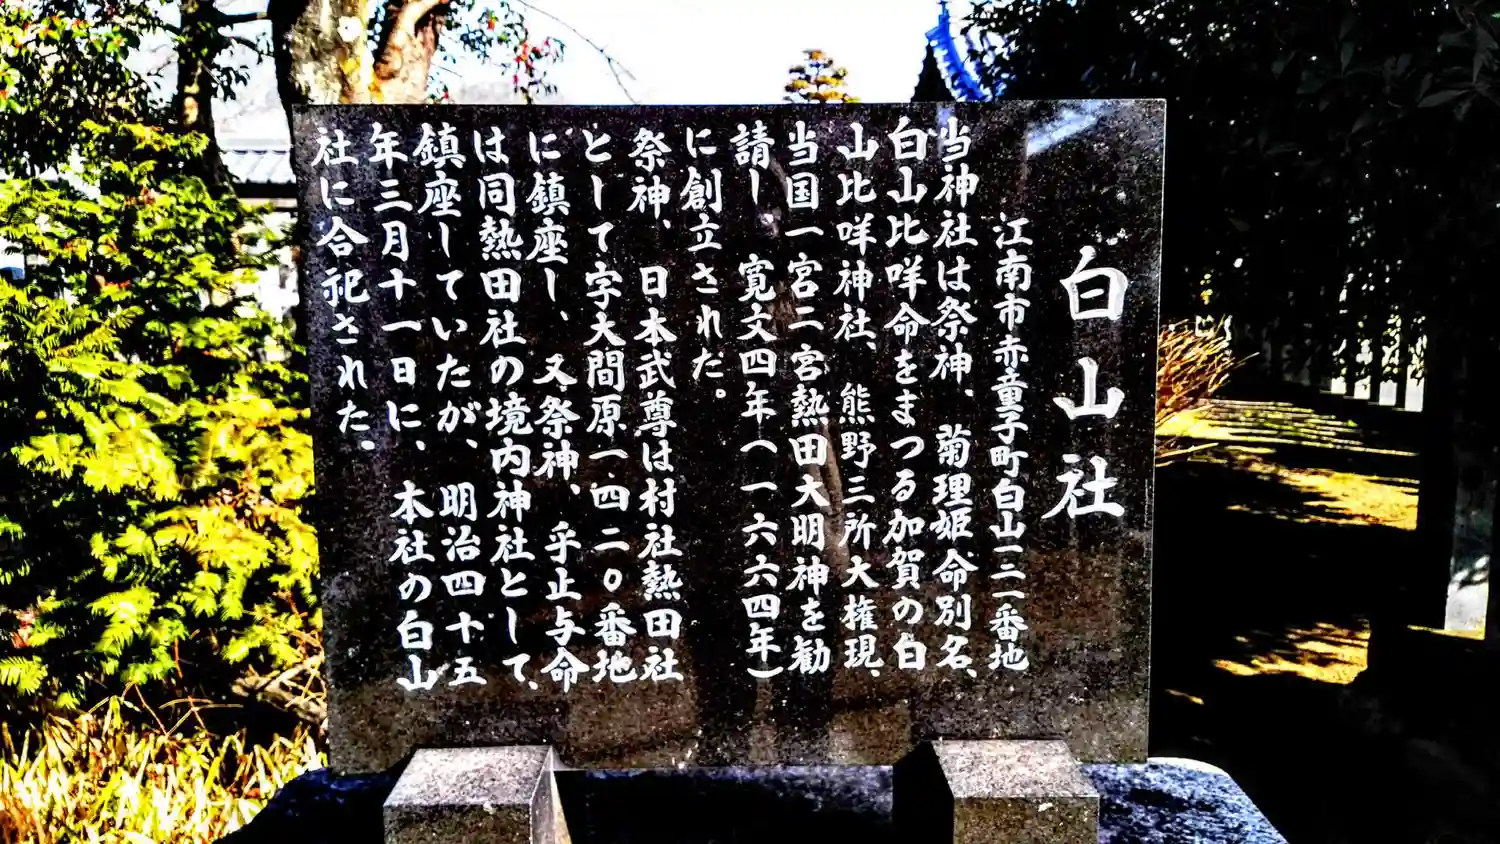 白山社
江南市赤童子町白山一二一番地
当神社は祭神、菊理姫命別名、
白山比咩命をまつる加賀の白
山比咩神社、熊野三所大権現、
当国一宮二宮熱田大明神を勧
請し 寛文四年(一六六四年)
に創立された。
祭神、日本武尊は村社熱田社
として字大間原一、四二〇番地
に鎮座し、又祭神、乎止与命
は同熱田社の境内神社として、
鎮座していたが、明治四十五
年三月十一日に、本社の白山
社に合祀された。